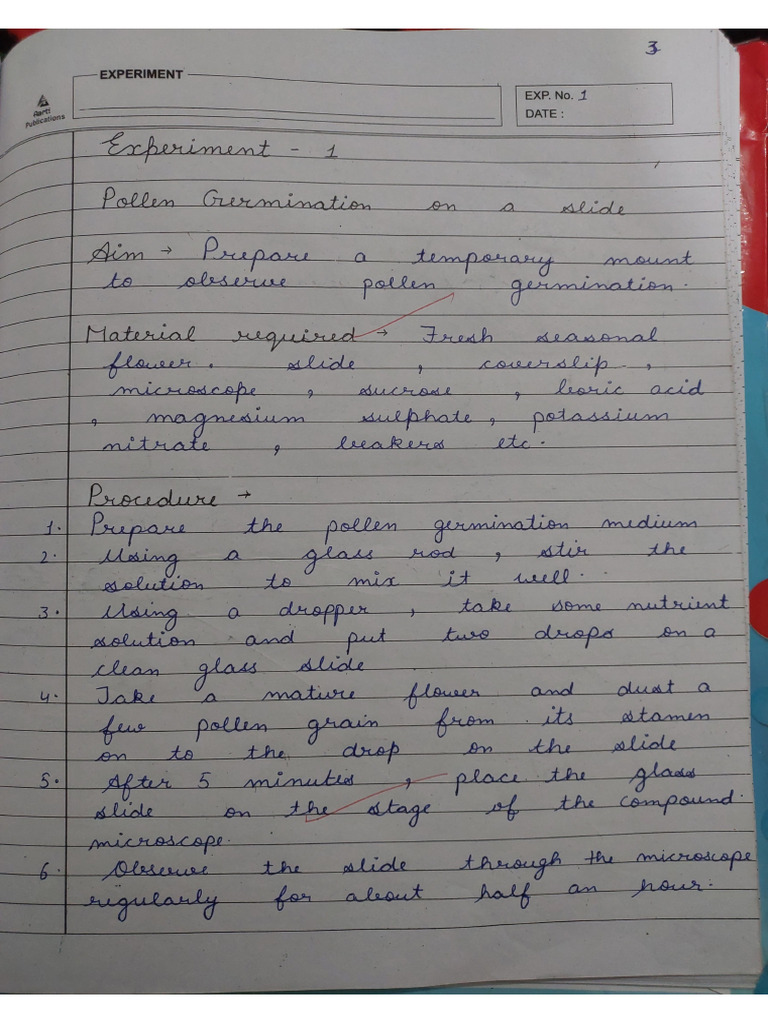 3
EXPERIMENT
Aarti
Publications
EXP. No. 1
DATE :
Experiment - 1
Pollen Germination on a slide
Aim → Prepare a temporary mount
to observe pollen germination.
Material required → Fresh seasonal
flower. slide , coverslip ,
microscope , sucrose , boric acid
, magnesium sulphate, potassium
nitrate , beakers etc.
Procedure →
1. Prepare the pollen germination medium
2. Using a glass rod , stir the
solution to mix it well.
3. Using a dropper , take some nutrient
solution and put two drops on a
clean glass slide
4. Take a mature flower and dust a
few pollen grain from its stamen
on to the drop on the slide
5. After 5 minutes , place the glass
slide on the stage of the compound
microscope.
6. Observe the slide through the microscope
regularly for about half an hour.